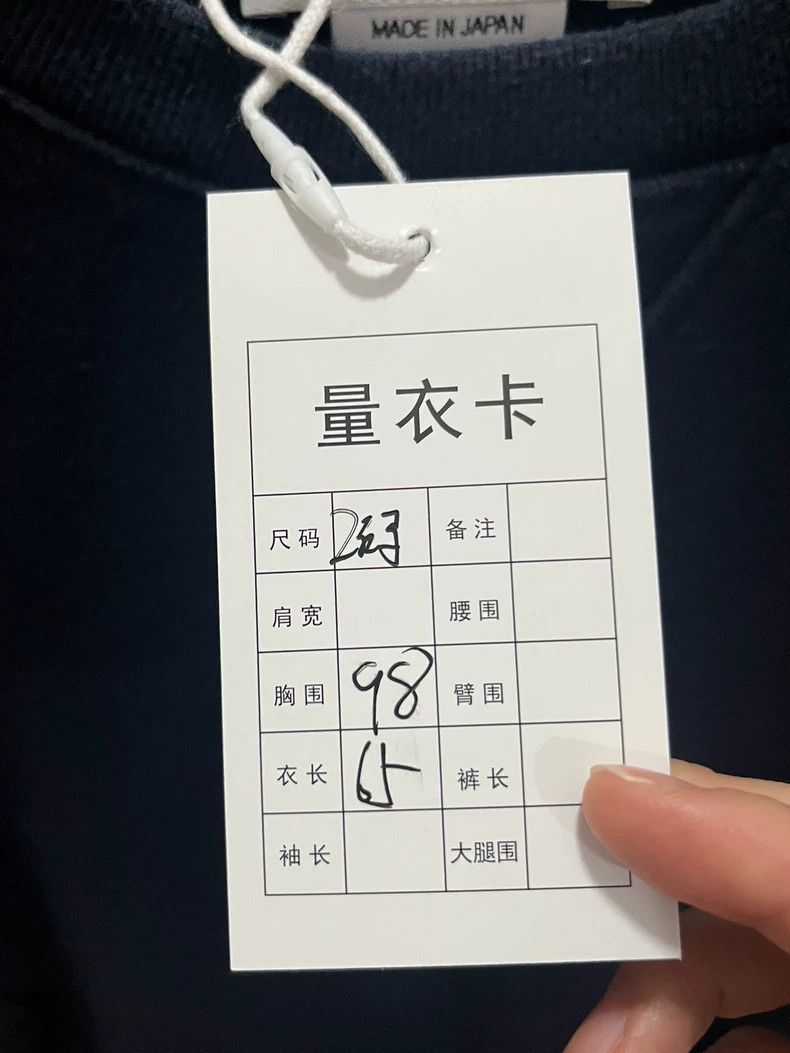 MADE IN JAPAN
量衣卡
尺码 2码 备注
肩宽 腰围
胸围 98 臂围
衣长 65 裤长
袖长 大腿围